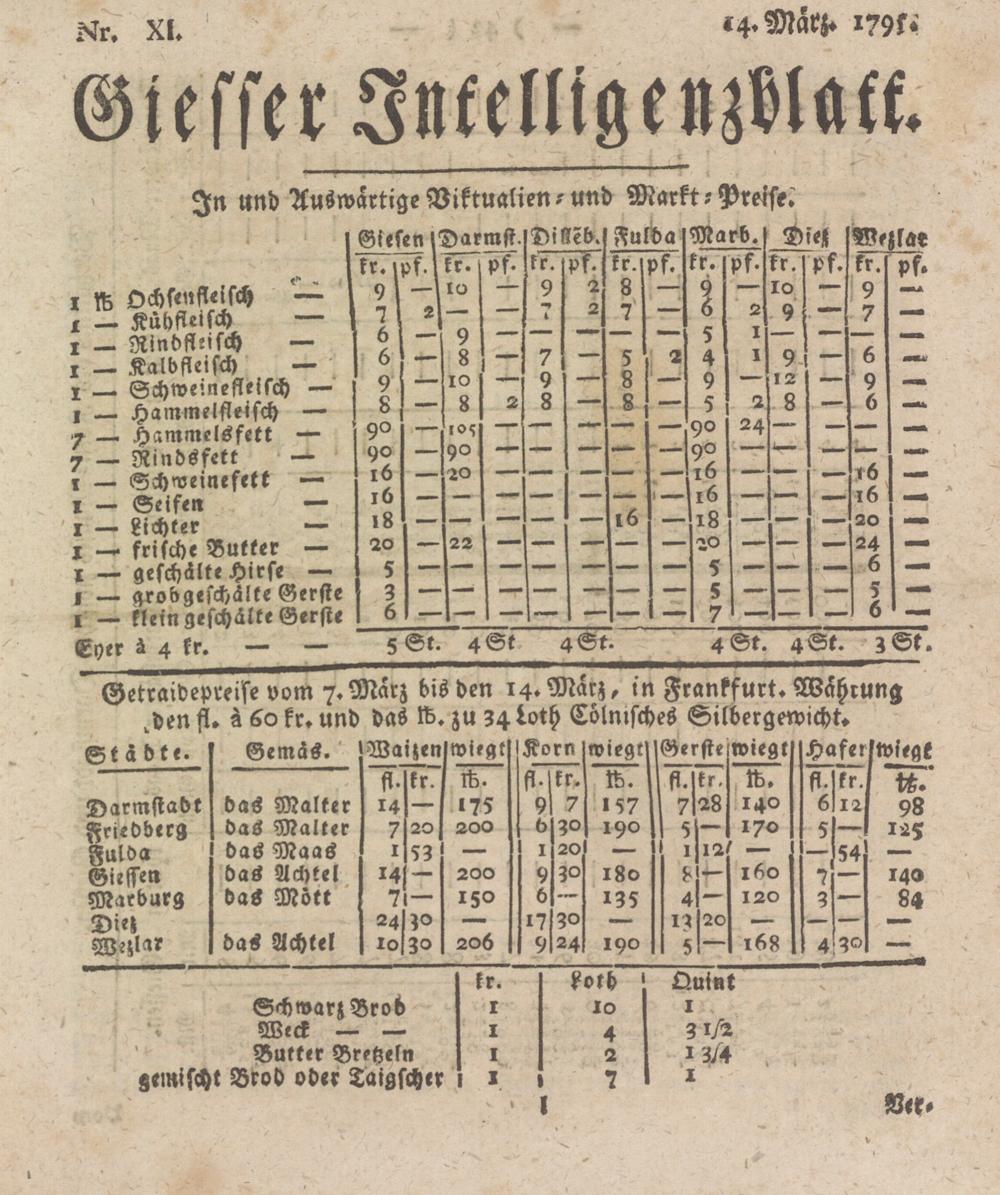 Nr. XI. 14. März. 1791.
Giesser Intelligenzblatt.
In und Auswärtige Viktualien- und Markt-Preise.
Giesen | Darmst. | Dillēb. | Fulda | Marb. | Dietz | Wetzlar
kr. | pf. | kr. | pf. | kr. | pf. | kr. | pf. | kr. | pf. | kr. | pf. | kr. | pf.
1 ℔ Ochsenfleisch — 9 | — | 10 | — | 9 | 2 | 8 | — | 9 | — | 10 | — | 9 | —
1 — Kühfleisch — 7 | 2 | — | — | 7 | 2 | 7 | — | 6 | 2 | 9 | — | 7 | —
1 — Rindfleisch — 6 | — | 9 | — | — | — | — | — | 5 | 1 | — | — | — | —
1 — Kalbfleisch — 6 | — | 8 | — | 7 | — | 5 | 2 | 4 | 1 | 9 | — | 6 | —
1 — Schweinefleisch — 9 | — | 10 | — | 9 | — | 8 | — | 9 | — | 12 | — | 9 | —
1 — Hammelfleisch 8 | — | 8 | 2 | 8 | — | 8 | — | 5 | 2 | 8 | — | 6 | —
7 — Hammelsfett — 90 | — | 105 | — | — | — | — | — | 90 | 24 | — | — | — | —
7 — Rindsfett — 90 | — | 90 | — | — | — | — | — | 90 | — | — | — | — | —
1 — Schweinefett — 16 | — | 20 | — | — | — | — | — | 16 | — | — | — | 16 | —
1 — Seifen — 16 | — | — | — | — | — | — | — | 16 | — | — | — | 16 | —
1 — Lichter — 18 | — | — | — | — | — | 16 | — | 18 | — | — | — | 20 | —
1 — frische Butter — 20 | — | 22 | — | — | — | — | — | 20 | — | — | — | 24 | —
1 — geschälte Hirse — 5 | — | — | — | — | — | — | — | 5 | — | — | — | 6 | —
1 — grobgeschälte Gerste 3 | — | — | — | — | — | — | — | 5 | — | — | — | 5 | —
1 — klein geschälte Gerste 6 | — | — | — | — | — | — | — | 7 | — | — | — | 6 | —
Eyer à 4 kr. — — 5 St. 4 St. 4 St. 4 St. 4 St. 3 St.
Getraidepreise vom 7. März bis den 14. März, in Frankfurt. Währung
den fl. à 60 kr. und das ℔. zu 34 Loth Cölnisches Silbergewicht.
Städte. | Gemäs. | Waizen | wiegt | Korn | wiegt | Gerste | wiegt | Hafer | wiegt
fl. | kr. | ℔. | fl. | kr. | ℔. | fl. | kr. | ℔. | fl. | kr. | ℔.
Darmstadt | das Malter | 14 | — | 175 | 9 | 7 | 157 | 7 | 28 | 140 | 6 | 12 | 98
Friedberg | das Malter | 7 | 20 | 200 | 6 | 30 | 190 | 5 | — | 170 | 5 | — | 125
Fulda | das Maas | 1 | 53 | — | 1 | 20 | — | 1 | 12 | — | — | 54 | —
Giessen | das Achtel | 14 | — | 200 | 9 | 30 | 180 | 8 | — | 160 | 7 | — | 140
Marburg | das Mött | 7 | — | 150 | 6 | — | 135 | 4 | — | 120 | 3 | — | 84
Dietz | 24 | 30 | — | 17 | 30 | — | 13 | 20 | — | — | — | —
Wetzlar | das Achtel | 10 | 30 | 206 | 9 | 24 | 190 | 5 | — | 168 | 4 | 30 | —
kr. | Loth | Quint
Schwarz Brod | 1 | 10 | 1
Weck — — | 1 | 4 | 3 1/2
Butter Bretzeln | 1 | 2 | 1 3/4
gemischt Brod oder Taigscher | 1 | 7 | 1
l Ver-